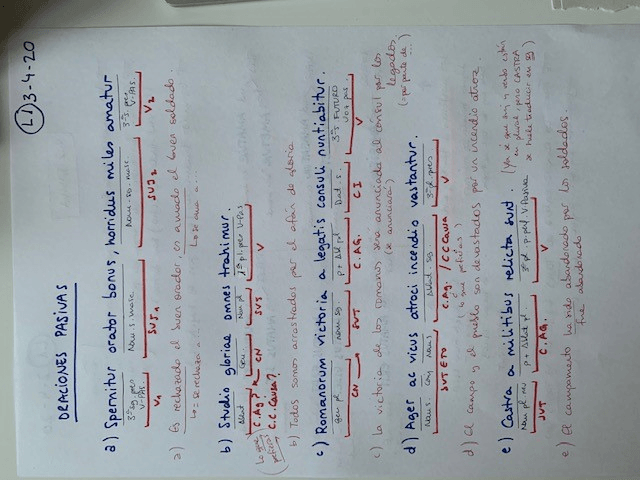 (L) 3-4-20
ORACIONES PASIVAS
a) Spernitur orator bonus, horridus miles amatur
3ª sg. pres V-PAS. Nom s. masc Nom. sg. masc 3ª s. pres V-PAS.
V1 SUJ1 SUJ2 V2
a) Es rechazado el buen orador, es amado el buen soldado.
Lo = se rechaza a... Lo se ama a...
b) Studio gloriae omnes trahimur.
Ablat Gen Nom pl 1ª pl. pres V-PAS.
C.Ag? CN SUJ V
C.C. Causa?
(Lo que pefieras?)
b) Todos somos arrastrados por el afán de gloria
c) Romanorum victoria a legatis consuli nuntiabitur.
Gen pl nom sg. p + Abl pl Dat. s. 3ª s FUTURO Voz pas
CN SUJ C. AG. CI V
c) La victoria de los romanos será anunciada al cónsul por los legados
(se anunciará) (= por parte de...)
d) Ager ac vicus atroci incendio vastantur.
Nom s. conj Nom s Ablat sg 3ª pl. pres
SUJETO C. Ag. / CC Causa V
(lo que pefieras)
d) El campo y el pueblo son devastados por un incendio atroz.
e) Castra a militibus relicta sunt. (Ya q suj y verbo están en plural, pero CASTRA se puede traducir en sg)
Nom pl n p + Ablat pl 3ª pl. p. perf V Pasiva
SUJ C. AG. V
e) El campamento ha sido abandonado por los soldados.
fue abandonado